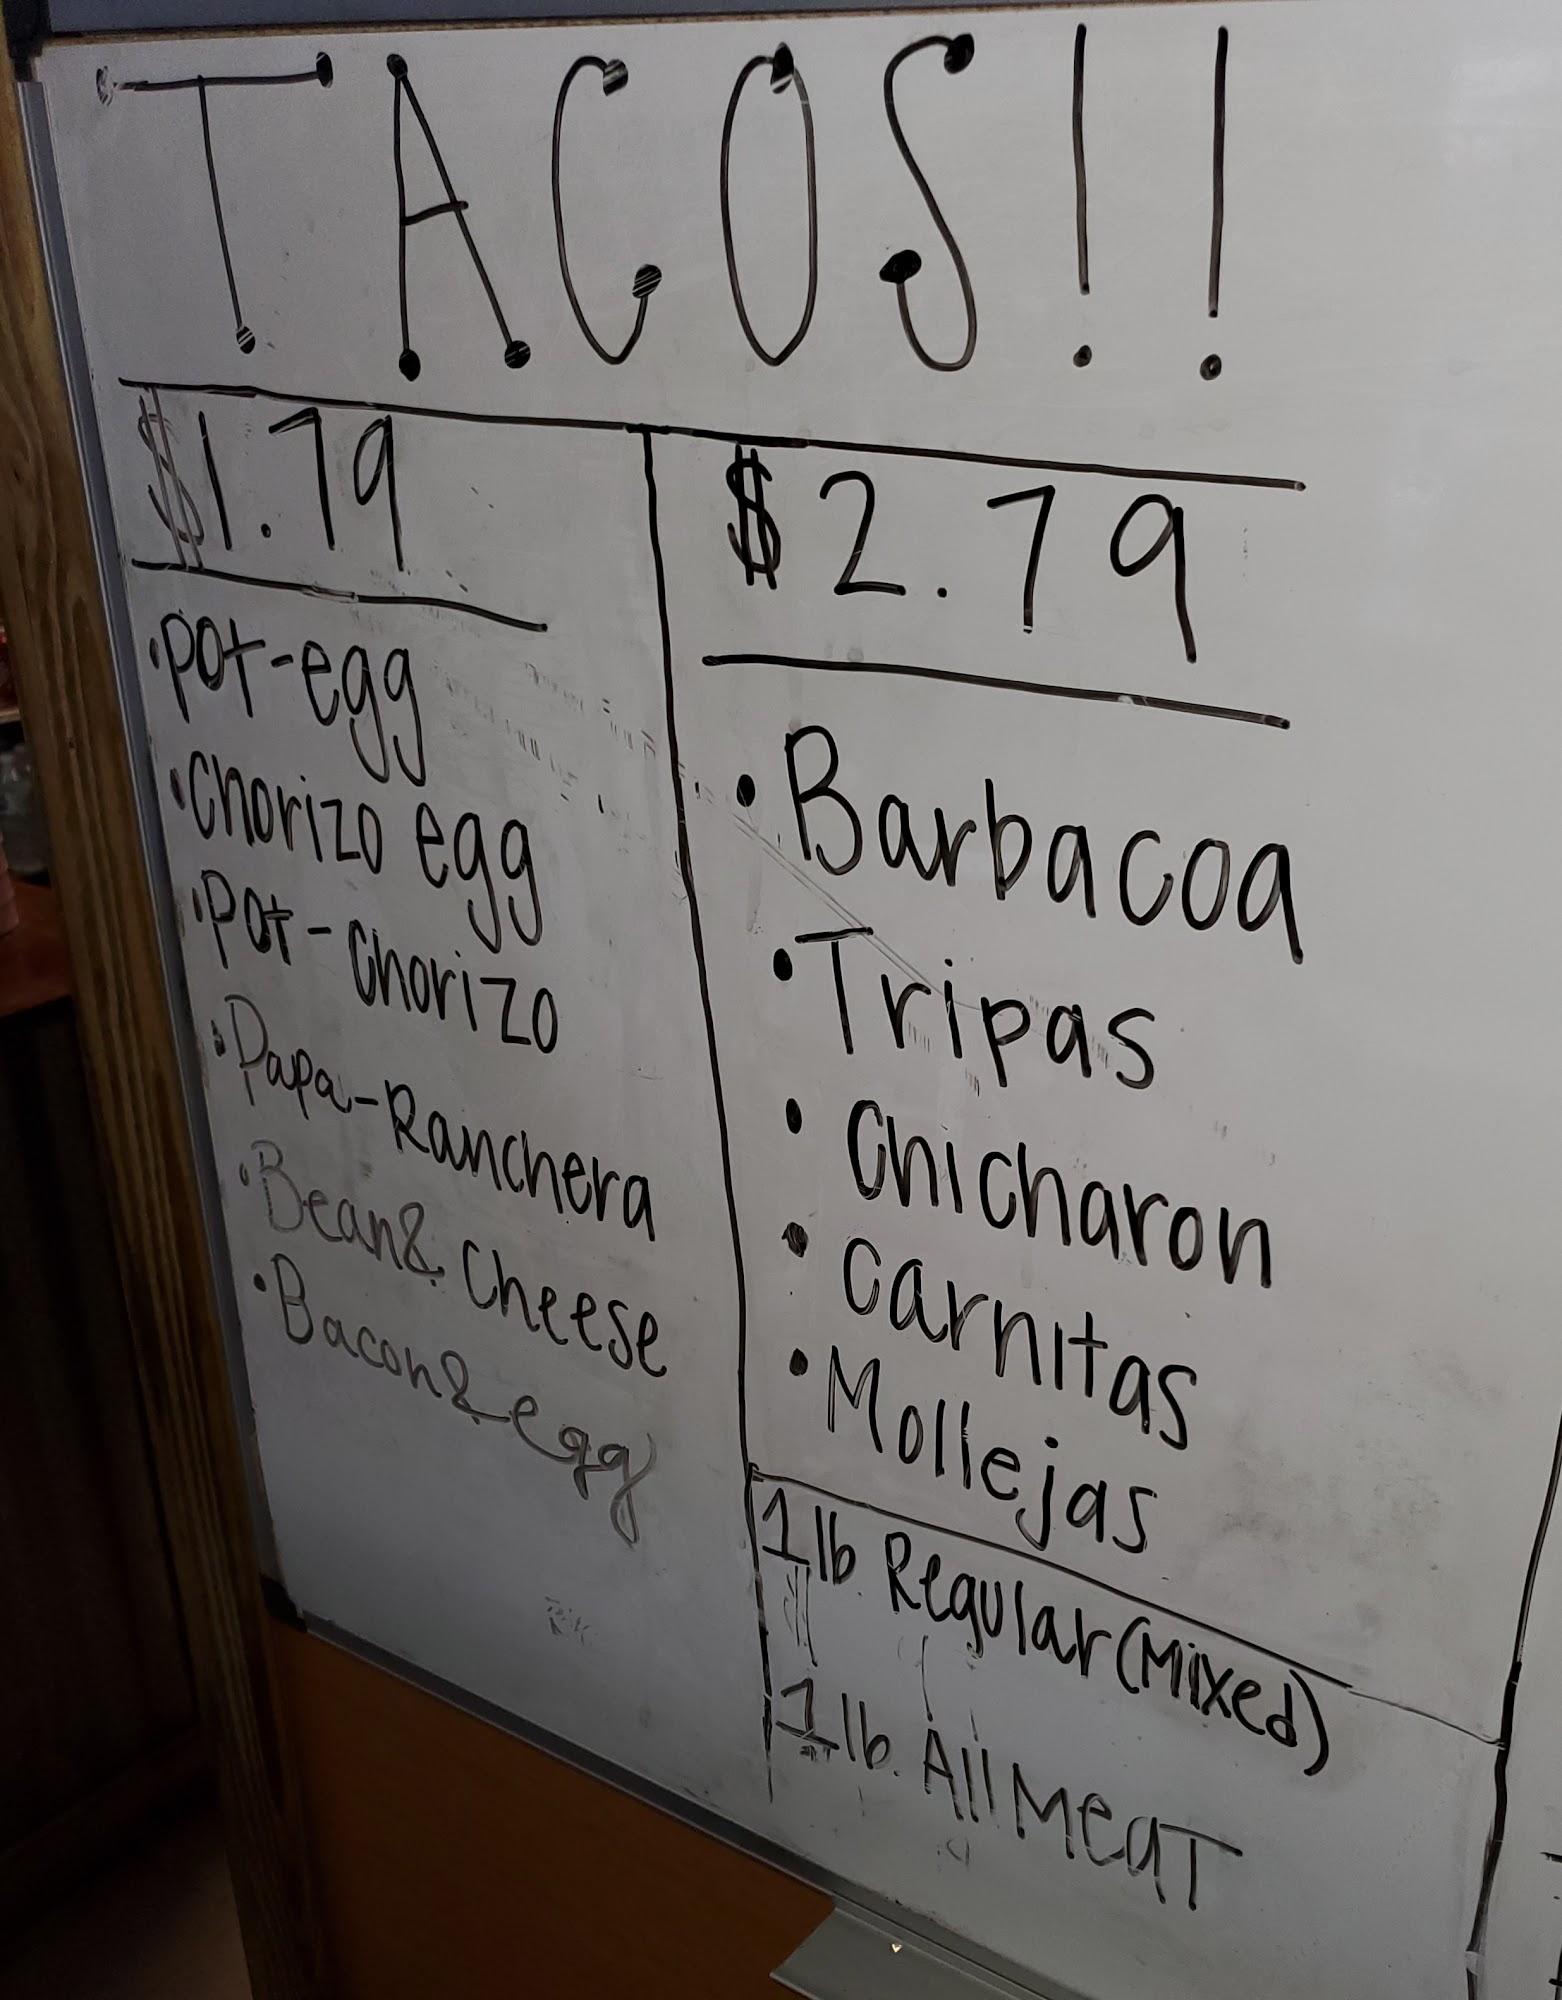 TACOS!!
$1.79
• pot-egg
• chorizo egg
• pot-chorizo
• Papa-Ranchera
• Bean & cheese
• Bacon & egg
$2.79
• Barbacoa
• Tripas
• Chicharon
• Carnitas
• Mollejas
1 lb Regular (Mixed)
1 lb. All MeaT